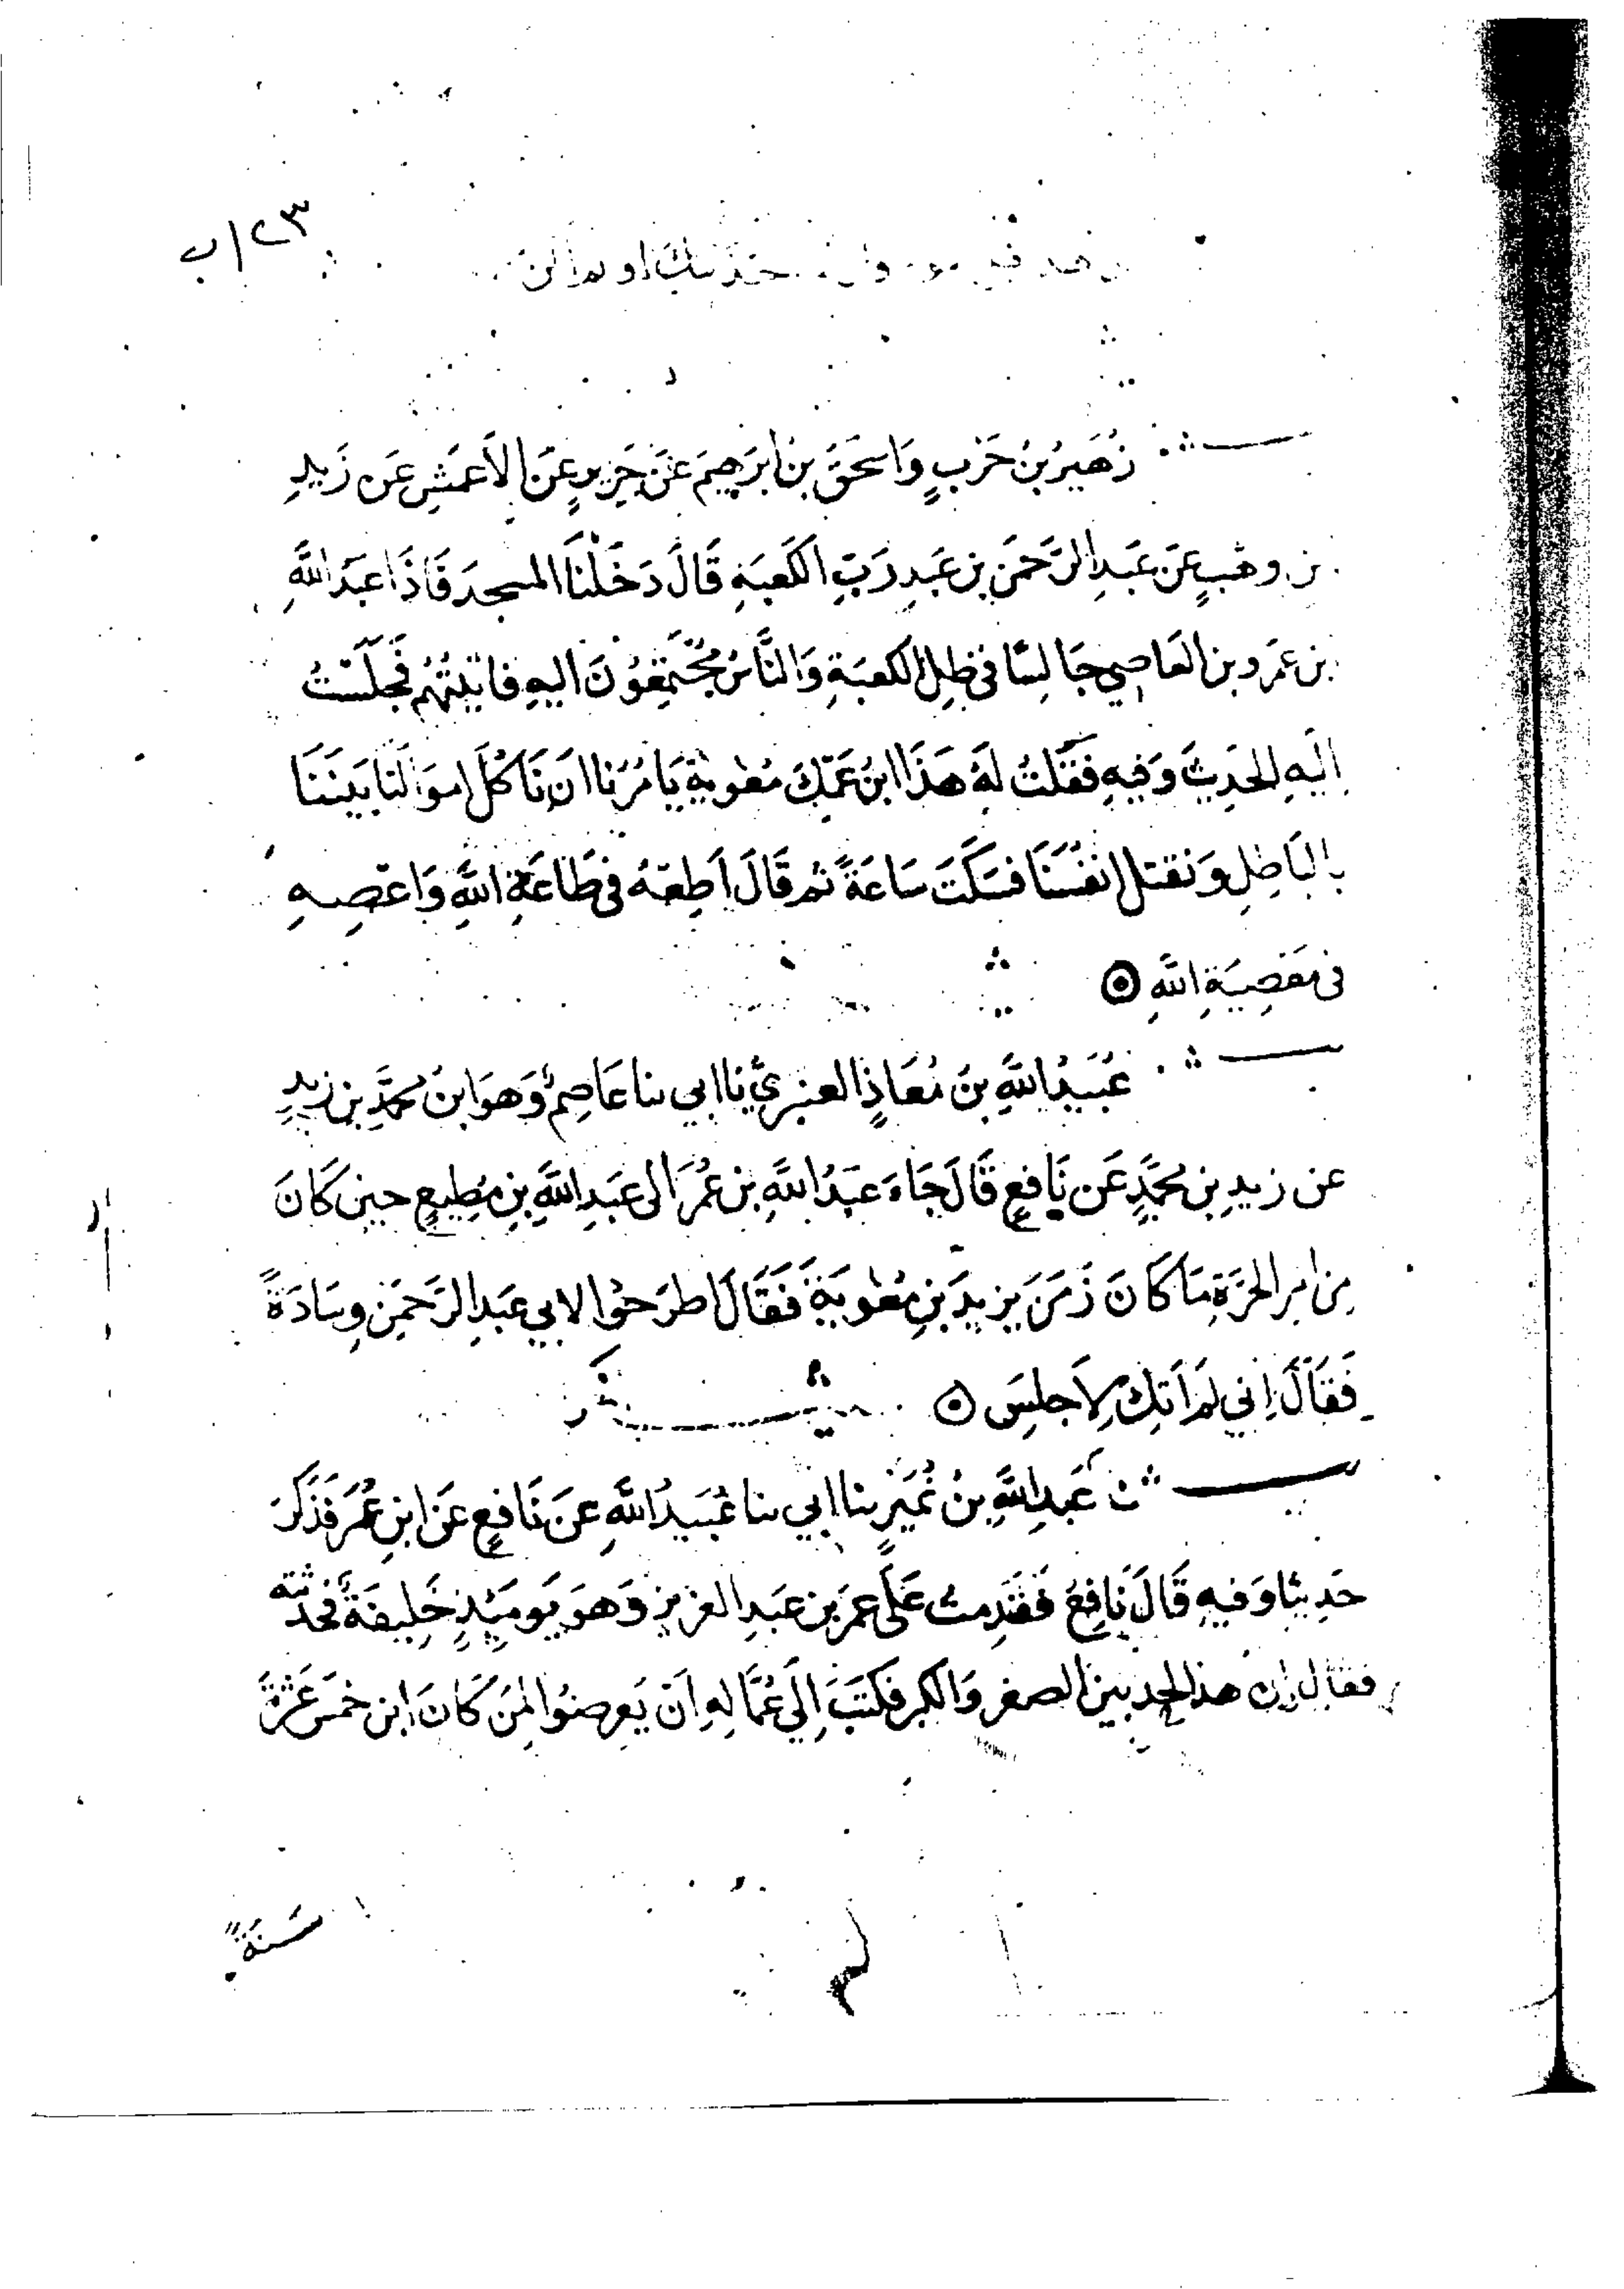 ٢٣/ب
ـــــ ث زُهَيرُ بنُ حَربٍ وَاسحَقَ بن ابرَهِيمَ عَن جَرِيرٍ عَن الأَعمَشِ عَن زَيدِ
بن وهبٍ عَن عَبدِ الرَّحمَنِ بن عَبدِ رَبِّ الكَعبَةِ قَالَ دَخَلْنَا المسجدَ فَاذَا عبدُ اللَّهِ
بن عَمرو بن العَاصِي جَالِسًا في ظِلِ الكعبَةِ وَالنَّاسُ مُجتَمِعُونَ اليهِ فاتيتُهُم فَجَلَسْتُ
اليهِ الحَدِيثَ وَفيهِ فَقُلتُ لَهُ هَذَا ابنُ عَمِّكَ مُعٰويةَ يَامُرُنا ان نَاكُلَ اموَالَنا بَينَنَا
بالبَاطِلِ وَنقتل انفُسَنَا فسَكَتَ سَاعَةً ثم قَالَ اَطِعهُ في طَاعَةِ اللَّهِ وَاعصِهِ
في مَعصِيَةِ اللَّهِ
ـــــ ث عُبَيدُ اللَّهِ بنُ مُعَاذٍ العنبريُّ نا ابي نا عَاصِمٌ وَهوَ ابنُ محمَّدِ بن زيدٍ
عن زيدِ بن مُحمَّدٍ عَن نَافِعٍ قَالَ جَاءَ عَبدُ اللَّهِ بن عُمَرَ الى عَبدِ اللَّهِ بنِ مُطِيعٍ حين كَانَ
مِن امرِ الحَرَّةِ مَا كَانَ زَمَنَ يَزِيدَ بنِ مُعٰويَةَ فَقَالَ اطرَحوُا لابي عَبدِ الرَّحمَنِ وِسَادَةً
فَقَالَ اِني لم اَتِكَ لاَجلِسَ
ـــــ ث عَبدِ اللَّهِ بنُ نُمَيرٍ نا ابي نا عُبَيدُ اللَّهِ عن نَافِعٍ عَن ابنِ عُمَرَ فَذَكَرَ
حَدِيثًا وَفيهِ قَالَ نَافِعُ فَقَدِمتُ عَلَى عمرَ بن عَبدِ العزيز وَهوَ يَومَئِذٍ خَلِيفَةٌ فحَدثته
فقالَ اِن هذا لحد بين الصغر وَالكبر فكَتَبَ اِلَى عُمَّالِهِ اَن يَعرِضُوا لِمَن كَانَ ابن خمسَ عَشْرَةَ
سَنَةً